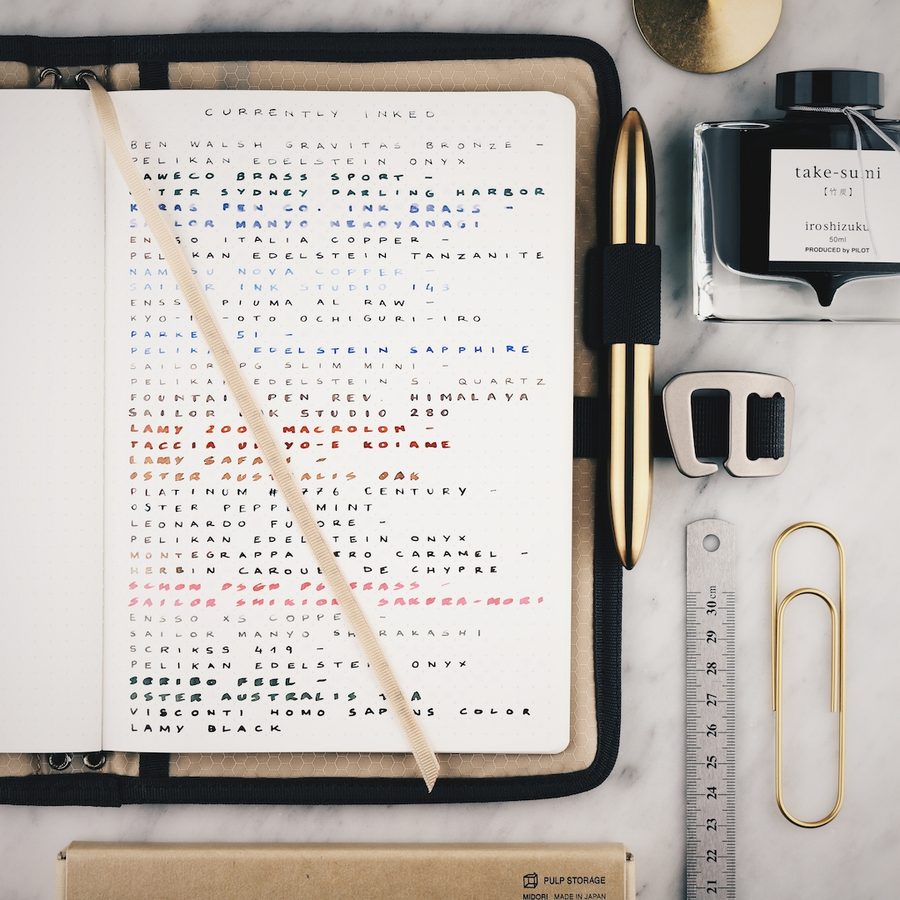 CURRENTLY INKED
BEN WALSH GRAVITAS BRONZE -
PELIKAN EDELSTEIN ONYX
AWECO BRASS SPORT -
STER SYDNEY DARLING HARBOR
K RAS PEN CO. INK BRASS -
S LOR MANYO NEKOYANAGI
EN SO ITALIA COPPER -
PEL KAN EDELSTEIN TANZANITE
NAM SU NOVA COPPER -
SAIL R INK STUDIO 143
ENSS PIUMA AL RAW -
KYO- -OTO OCHIGURI-IRO
PARKE 51 -
PELIK EDELSTEIN SAPPHIRE
SAILOR PG SLIM MINI -
PELIKA EDELSTEIN S. QUARTZ
FOUNTAI PEN REV. HIMALAYA
SAILOR NK STUDIO 280
LAMY 200 MACROLON -
TACCIA U YO-E KOIAME
LAMY SAFA -
OSTER AUST ALIS OAK
PLATINUM # 776 CENTURY -
OSTER PEPP MINT
LEONARDO FU ORE -
PELIKAN EDEL TEIN ONYX
MONTEGRAPPA ERO CARAMEL -
HERBIN CAROUB DE CHYPRE
SCHON DSGN P6 BRASS -
SAILOR SHIKIO SAKURA-MORI
ENSSO XS COPPE -
SAILOR MANYO SH RAKASHI
SCRIKSS 419 -
PELIKAN EDELSTEI ONYX
SCRIBO FEEL -
OSTER AUSTRALIS T A
VISCONTI HOMO SAP NS COLOR
LAMY BLACK
take-sumi
【竹炭】
iroshizuku
50ml
PRODUCED by PILOT
30 cm
29
28
27
26
25
24
23
22
21
PULP STORAGE
MIDORI MADE IN JAPAN